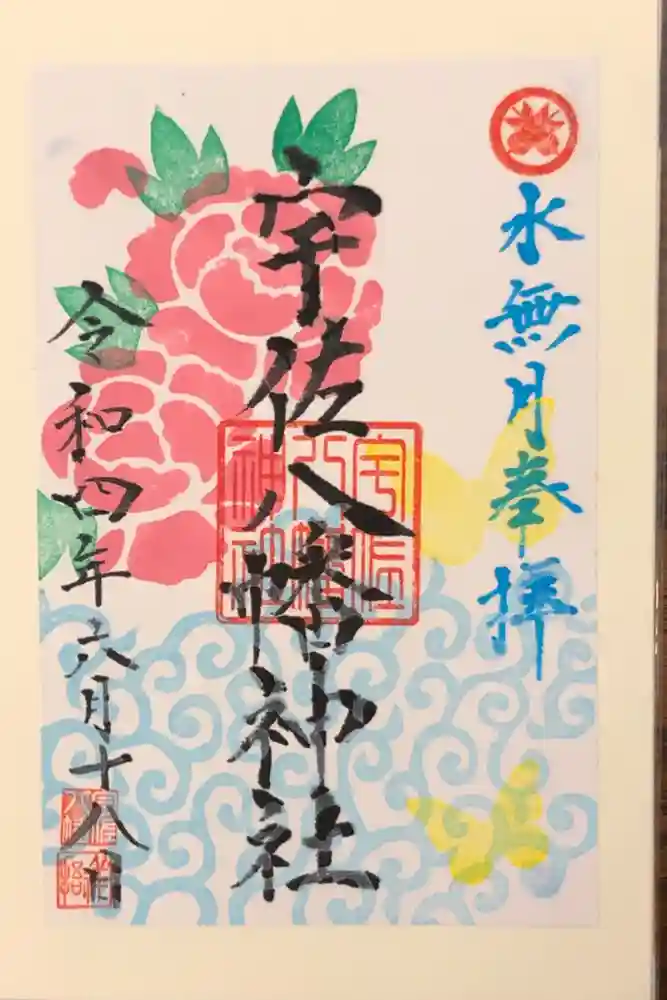 水無月奉拝
宇佐八幡神社
宇佐八幡神社
令和四年六月十八日